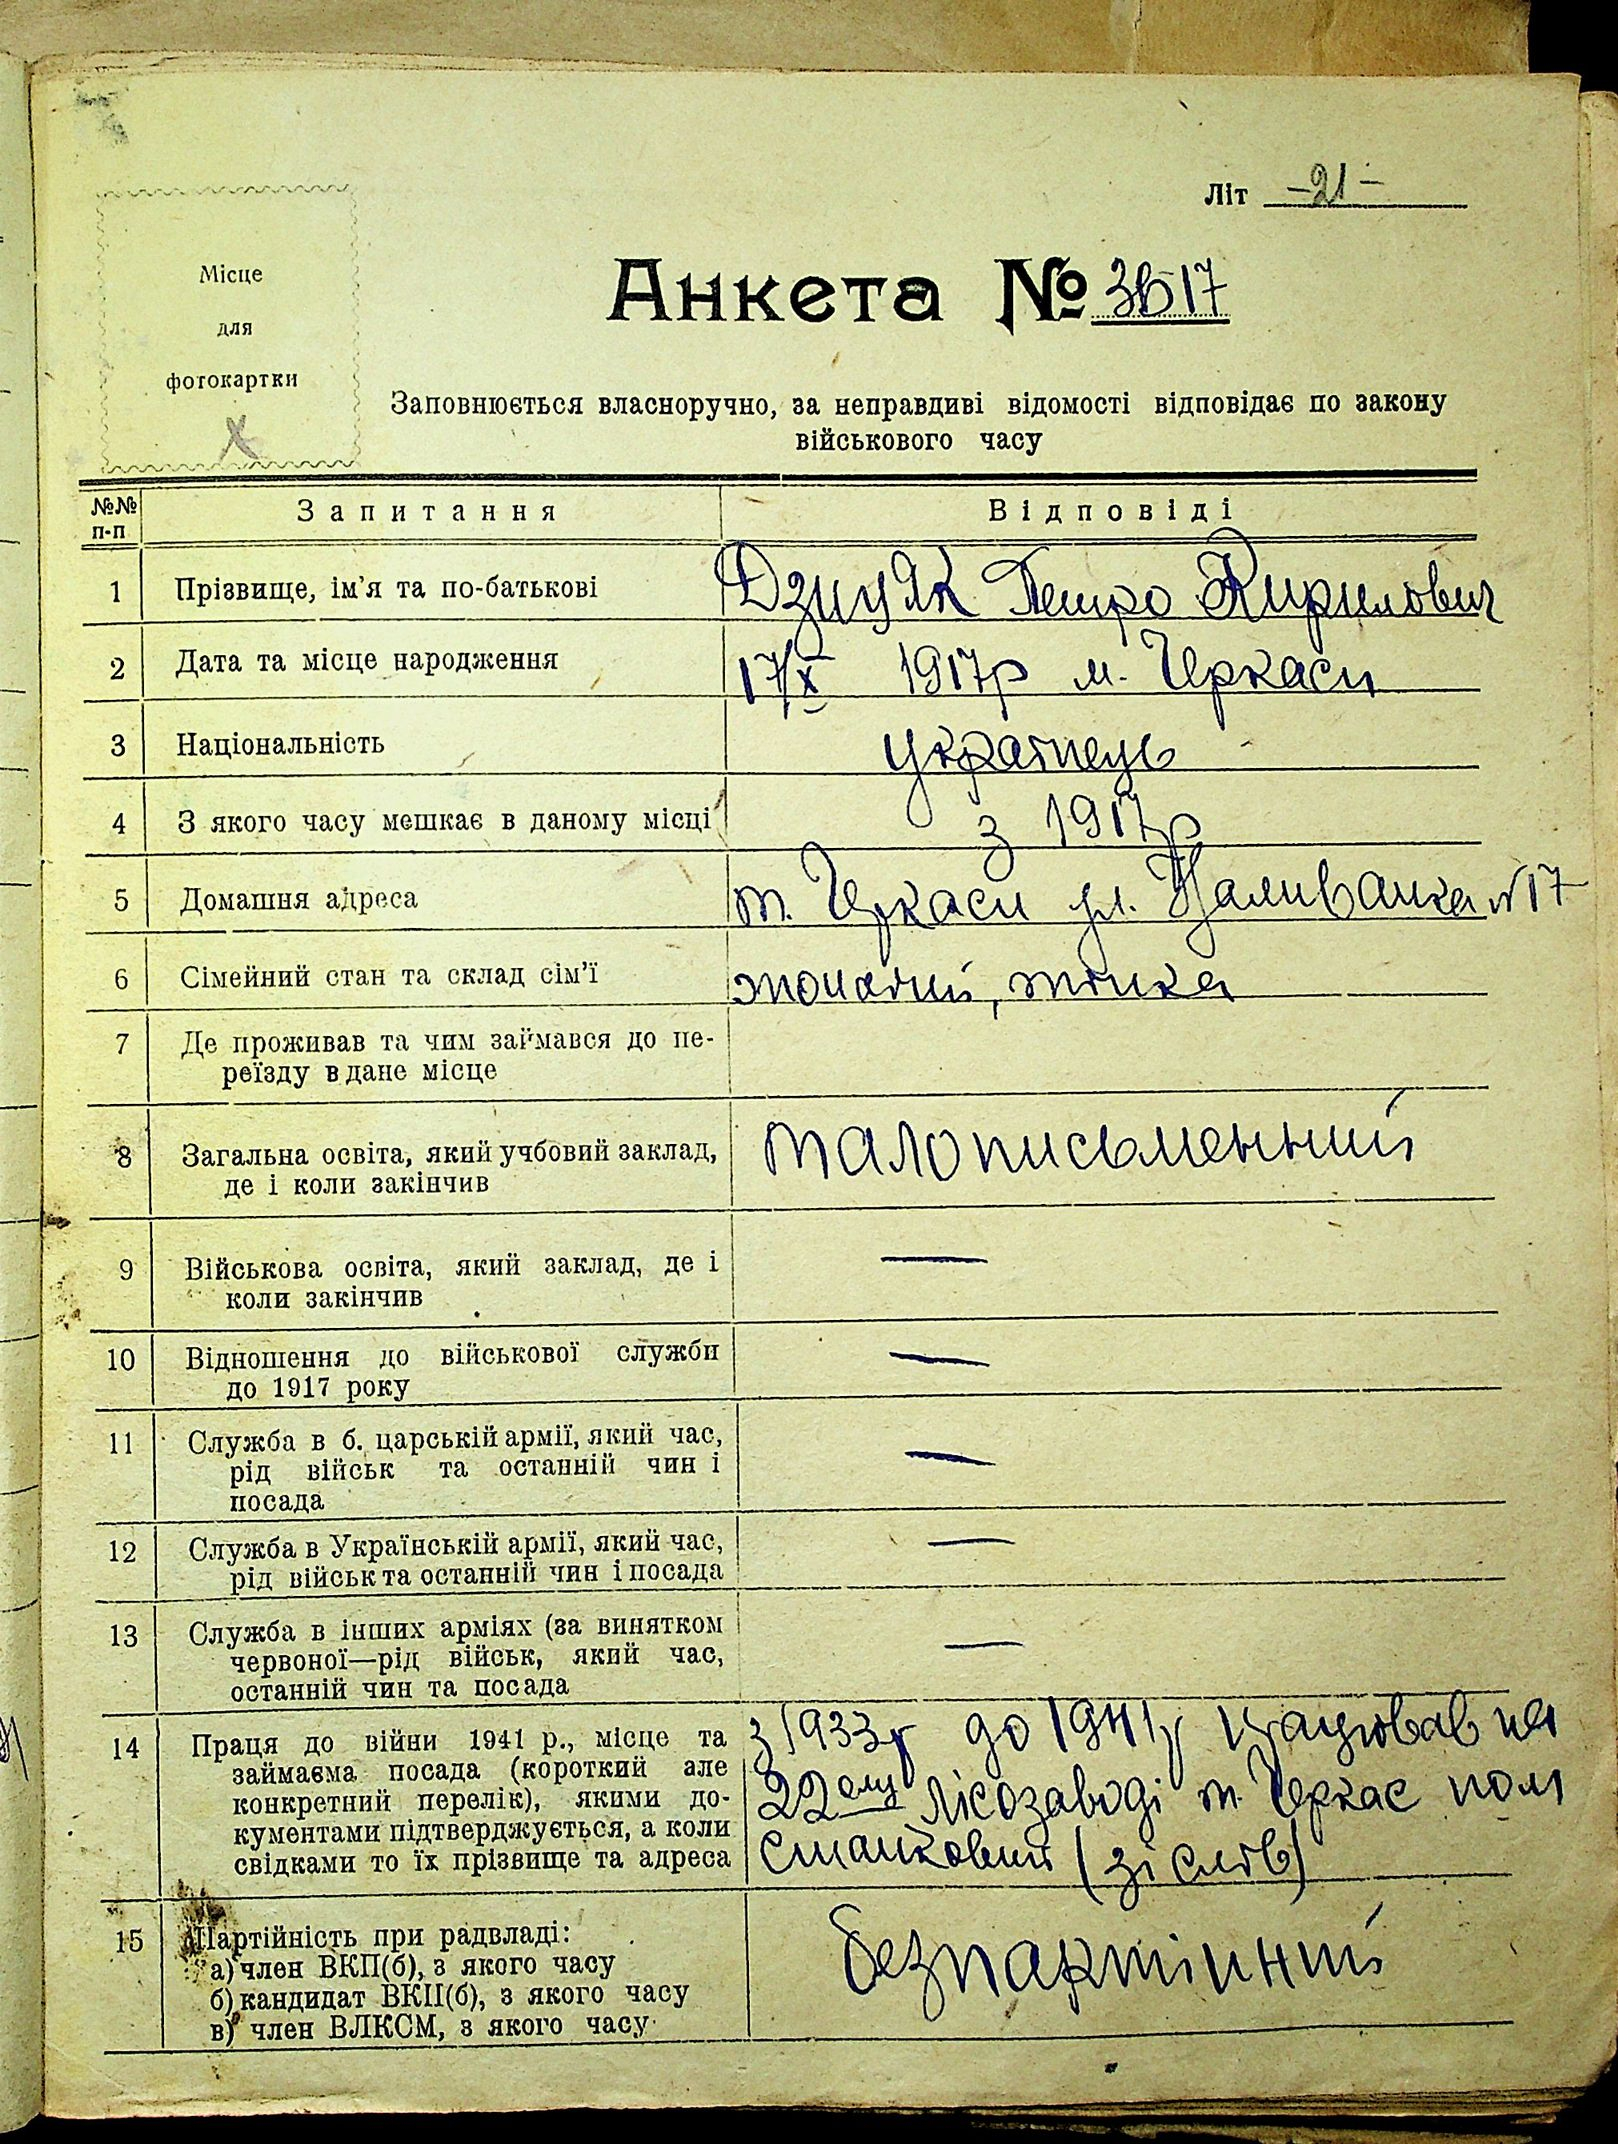 Літ -21-
Місце
для
фотокартки
х
Анкета №
Заповнюється власноручно, за неправдиві відомості відповідає по закону
військового часу
№№ п-п Запитання Відповіді
1 Прізвище, ім'я та по-батькові Петро Кирилович
2 Дата та місце народження 17/X 1917р м. Черкаси
3 Національність українець
4 З якого часу мешкає в даному місці з 1917р
5 Домашня адреса м. Черкаси ул. Наливайка №17
6 Сімейний стан та склад сім'ї жонатий, жінка
7 Де проживав та чим займався до пе-
реїзду в дане місце
8 Загальна освіта, який учбовий заклад, малописьменний
де і коли закінчив
9 Військова освіта, який заклад, де і —
коли закінчив
10 Відношення до військової служби —
до 1917 року
11 Служба в б. царській армії, який час, —
рід військ та останній чин і
посада
12 Служба в Українській армії, який час, —
рід військ та останній чин і посада
13 Служба в інших арміях (за винятком —
червоної—рід військ, який час,
останній чин та посада
14 Праця до війни 1941 р., місце та з 1933р до 1941р працював на
займаєма посада (короткий але 22ому лісозаводі м. Черкас
конкретний перелік), якими до-
кументами підтверджується, а коли (зі слів)
свідками то їх прізвище та адреса
15 Партійність при радвладі: безпартійний
а) член ВКП(б), з якого часу
б) кандидат ВКП(б), з якого часу
в) член ВЛКСМ, з якого часу